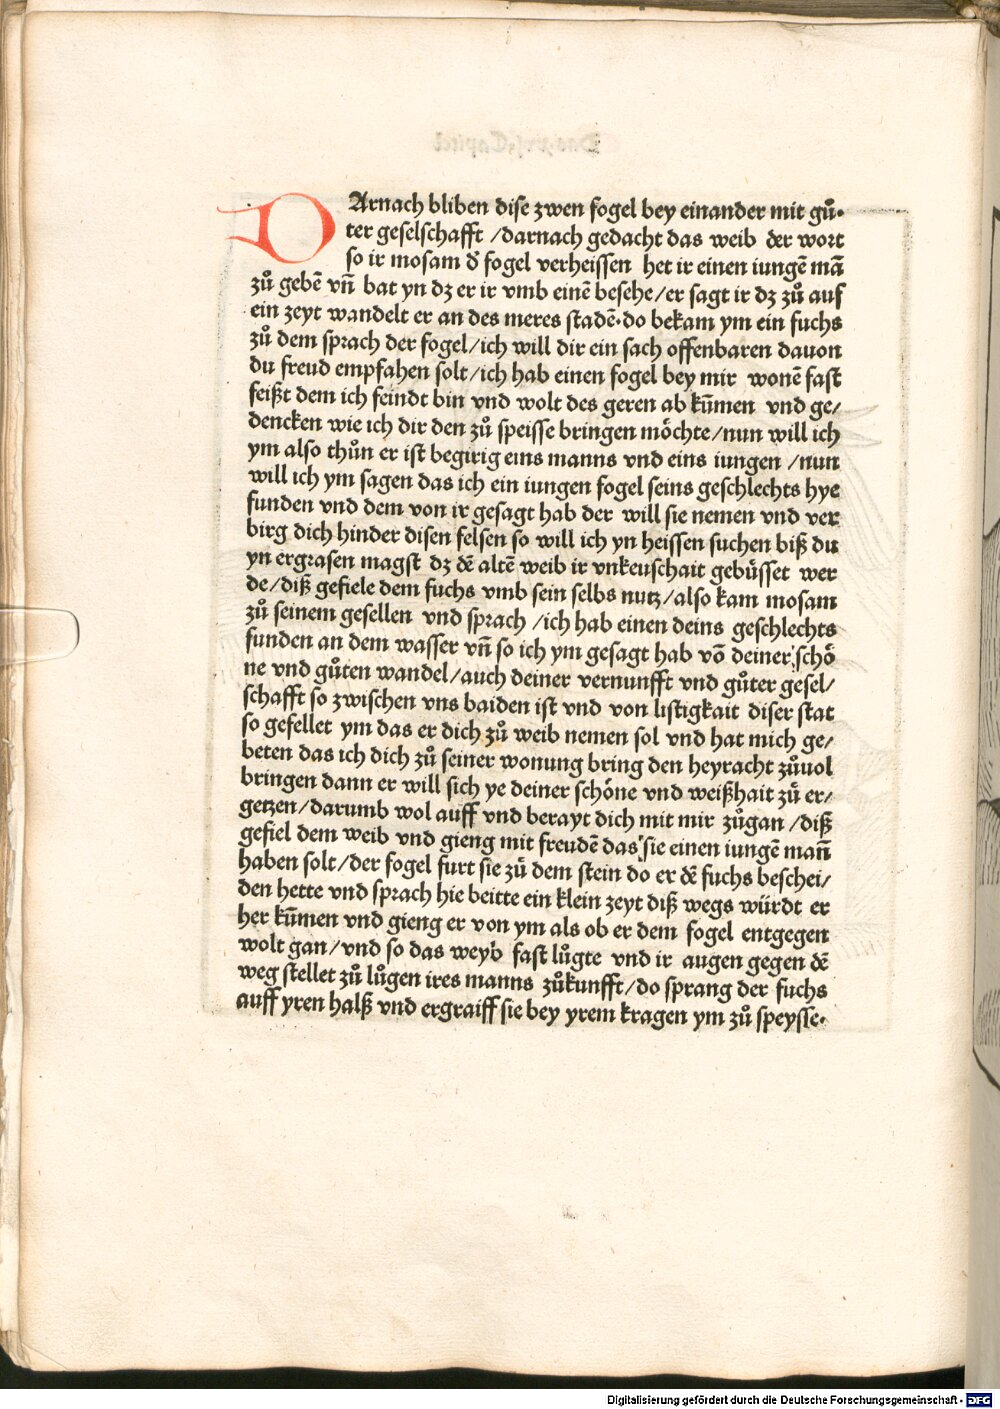 DArnach bliben dise zwen fogel bey einander mit gů·
ter geselschafft /darnach gedacht das weib der wort
so ir mosam d̕ fogel verheissen het ir einen iungē mā
zů gebē vn̄ bat yn dz er ir vmb einē besehe/er sagt ir dz zů auf
ein zeyt wandelt er an des meres stadē·do bekam ym ein fuchs
zů dem sprach der fogel/ich will dir ein sach offenbaren dauon
du freud empfahen solt/ich hab einen fogel bey mir wonē fast
feißt dem ich feindt bin vnd wolt des geren ab kūmen vnd ge/
dencken wie ich dir den zů speisse bringen möchte/nun will ich
ym also thůn er ist begirig eins manns vnd eins iungen /nun
will ich ym sagen das ich ein iungen fogel seins geschlechts hye
funden vnd dem von ir gesagt hab der will sie nemen vnd ver
birg dich hinder disen felsen so will ich yn heissen suchen biß du
yn ergrasen magst dz dē altē weib ir vnkeuschait gebüsset wer
de/diß gefiele dem fuchs vmb sein selbs nutz/also kam mosam
zů seinem gesellen vnd sprach /ich hab einen deins geschlechts
funden an dem wasser vn̄ so ich ym gesagt hab vō deiner schö
ne vnd gůten wandel/auch deiner vernunfft vnd gůter gesel/
schafft so zwischen vns baiden ist vnd von listigkait diser stat
so gefellet ym das er dich zů weib nemen sol vnd hat mich ge/
beten das ich dich zů seiner wonung bring den heyracht zůuol
bringen dann er will sich ye deiner schöne vnd weißhait zů er/
getzen/darumb wol auff vnd berayt dich mit mir zůgan /diß
gefiel dem weib vnd gieng mit freudē das sie einen iungē man̄
haben solt/der fogel furt sie zů dem stein do er dē fuchs beschei/
den hette vnd sprach hie beitte ein klein zeyt diß wegs würdt er
her kūmen vnd gieng er von ym als ob er dem fogel entgegen
wolt gan/vnd so das weyb fast lůgte vnd ir augen gegen dē
weg stellet zů lůgen ires manns zůkunfft/do sprang der fuchs
auff yren halß vnd ergraiff sie bey yrem kragen ym zů speysse·
Digitalisierung gefördert durch die Deutsche Forschungsgemeinschaft - DFG